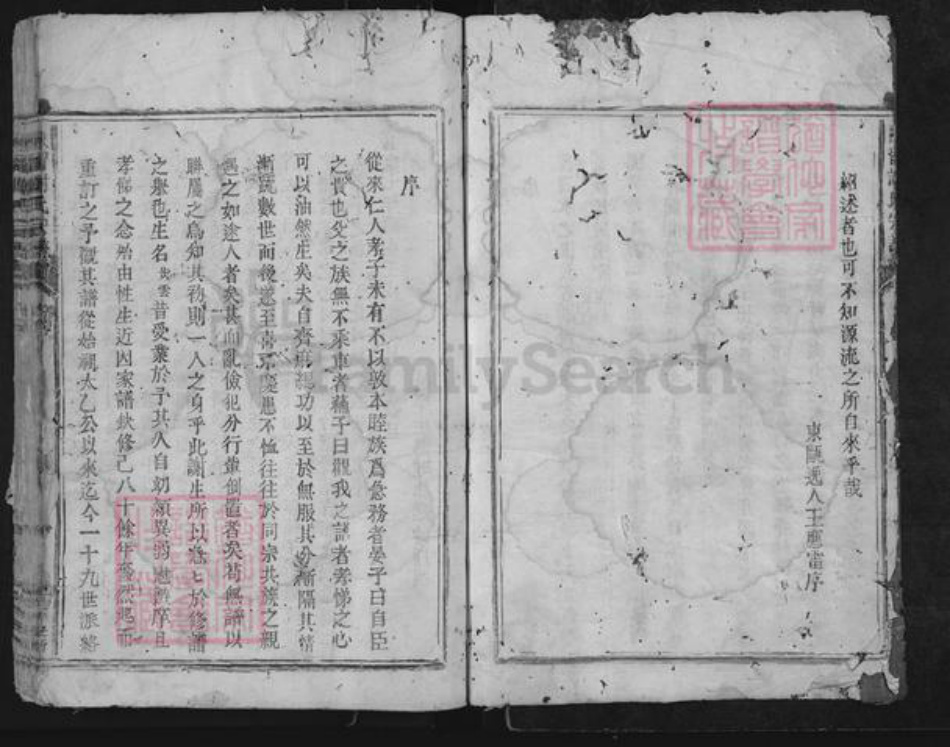 紹述者也可不知源流之所自來乎哉
東甌逸人王應富序
序
從來仁人孝子未有不以敦本睦族為急務者晏子曰自臣
之貴也父之族無不乘車者蘇子曰觀我之譜者孝悌之心
可以油然生矣夫自齊衰緦功以至於無服其分漸隔其情
漸疏數世而後遂至喜不慶患不恤往往於同宗共族之親
遇之如途人者矣甚而亂倫犯分行輩倒置者矣苟無譜以
聯屬之烏知其初則一人之身乎此謝生所以惓惓於修譜
之舉也生名 昔受業於予其人自幼穎異
孝悌之念殆由性生近因家譜缺修已八十餘年 然 而
重訂之予觀其譜從始祖太乙公以來迄今一十九世派
FamilySearch